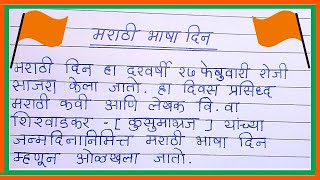 मराठी भाषा दिन
मराठी दिन हा दरवर्षी २७ फेब्रुवारी रोजी
साजरा केला जातो. हा दिवस प्रसिध्द
मराठी कवी आणि लेखक वि. वा
शिरवाडकर - [ कुसुमाग्रज ] यांच्या
जन्मदिनानिमित्त मराठी भाषा दिन
म्हणून ओळखला जातो.